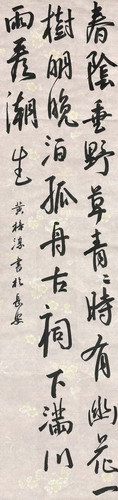 春陰垂野草青〻時有幽花一
樹明晚泊孤舟古祠下滿川
雨看潮生
黄 書於長安